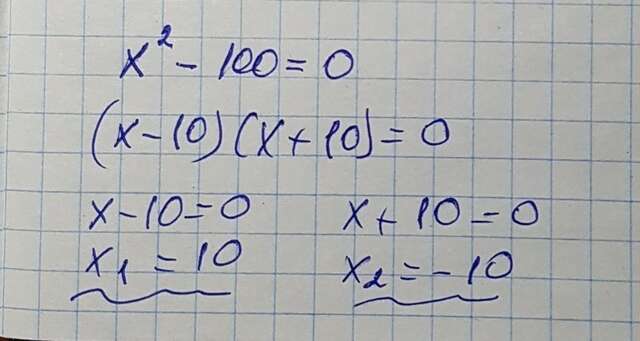 x² - 100 = 0
(x - 10)(x + 10) = 0
x - 10 = 0 x + 10 = 0
x₁ = 10 x₂ = -10